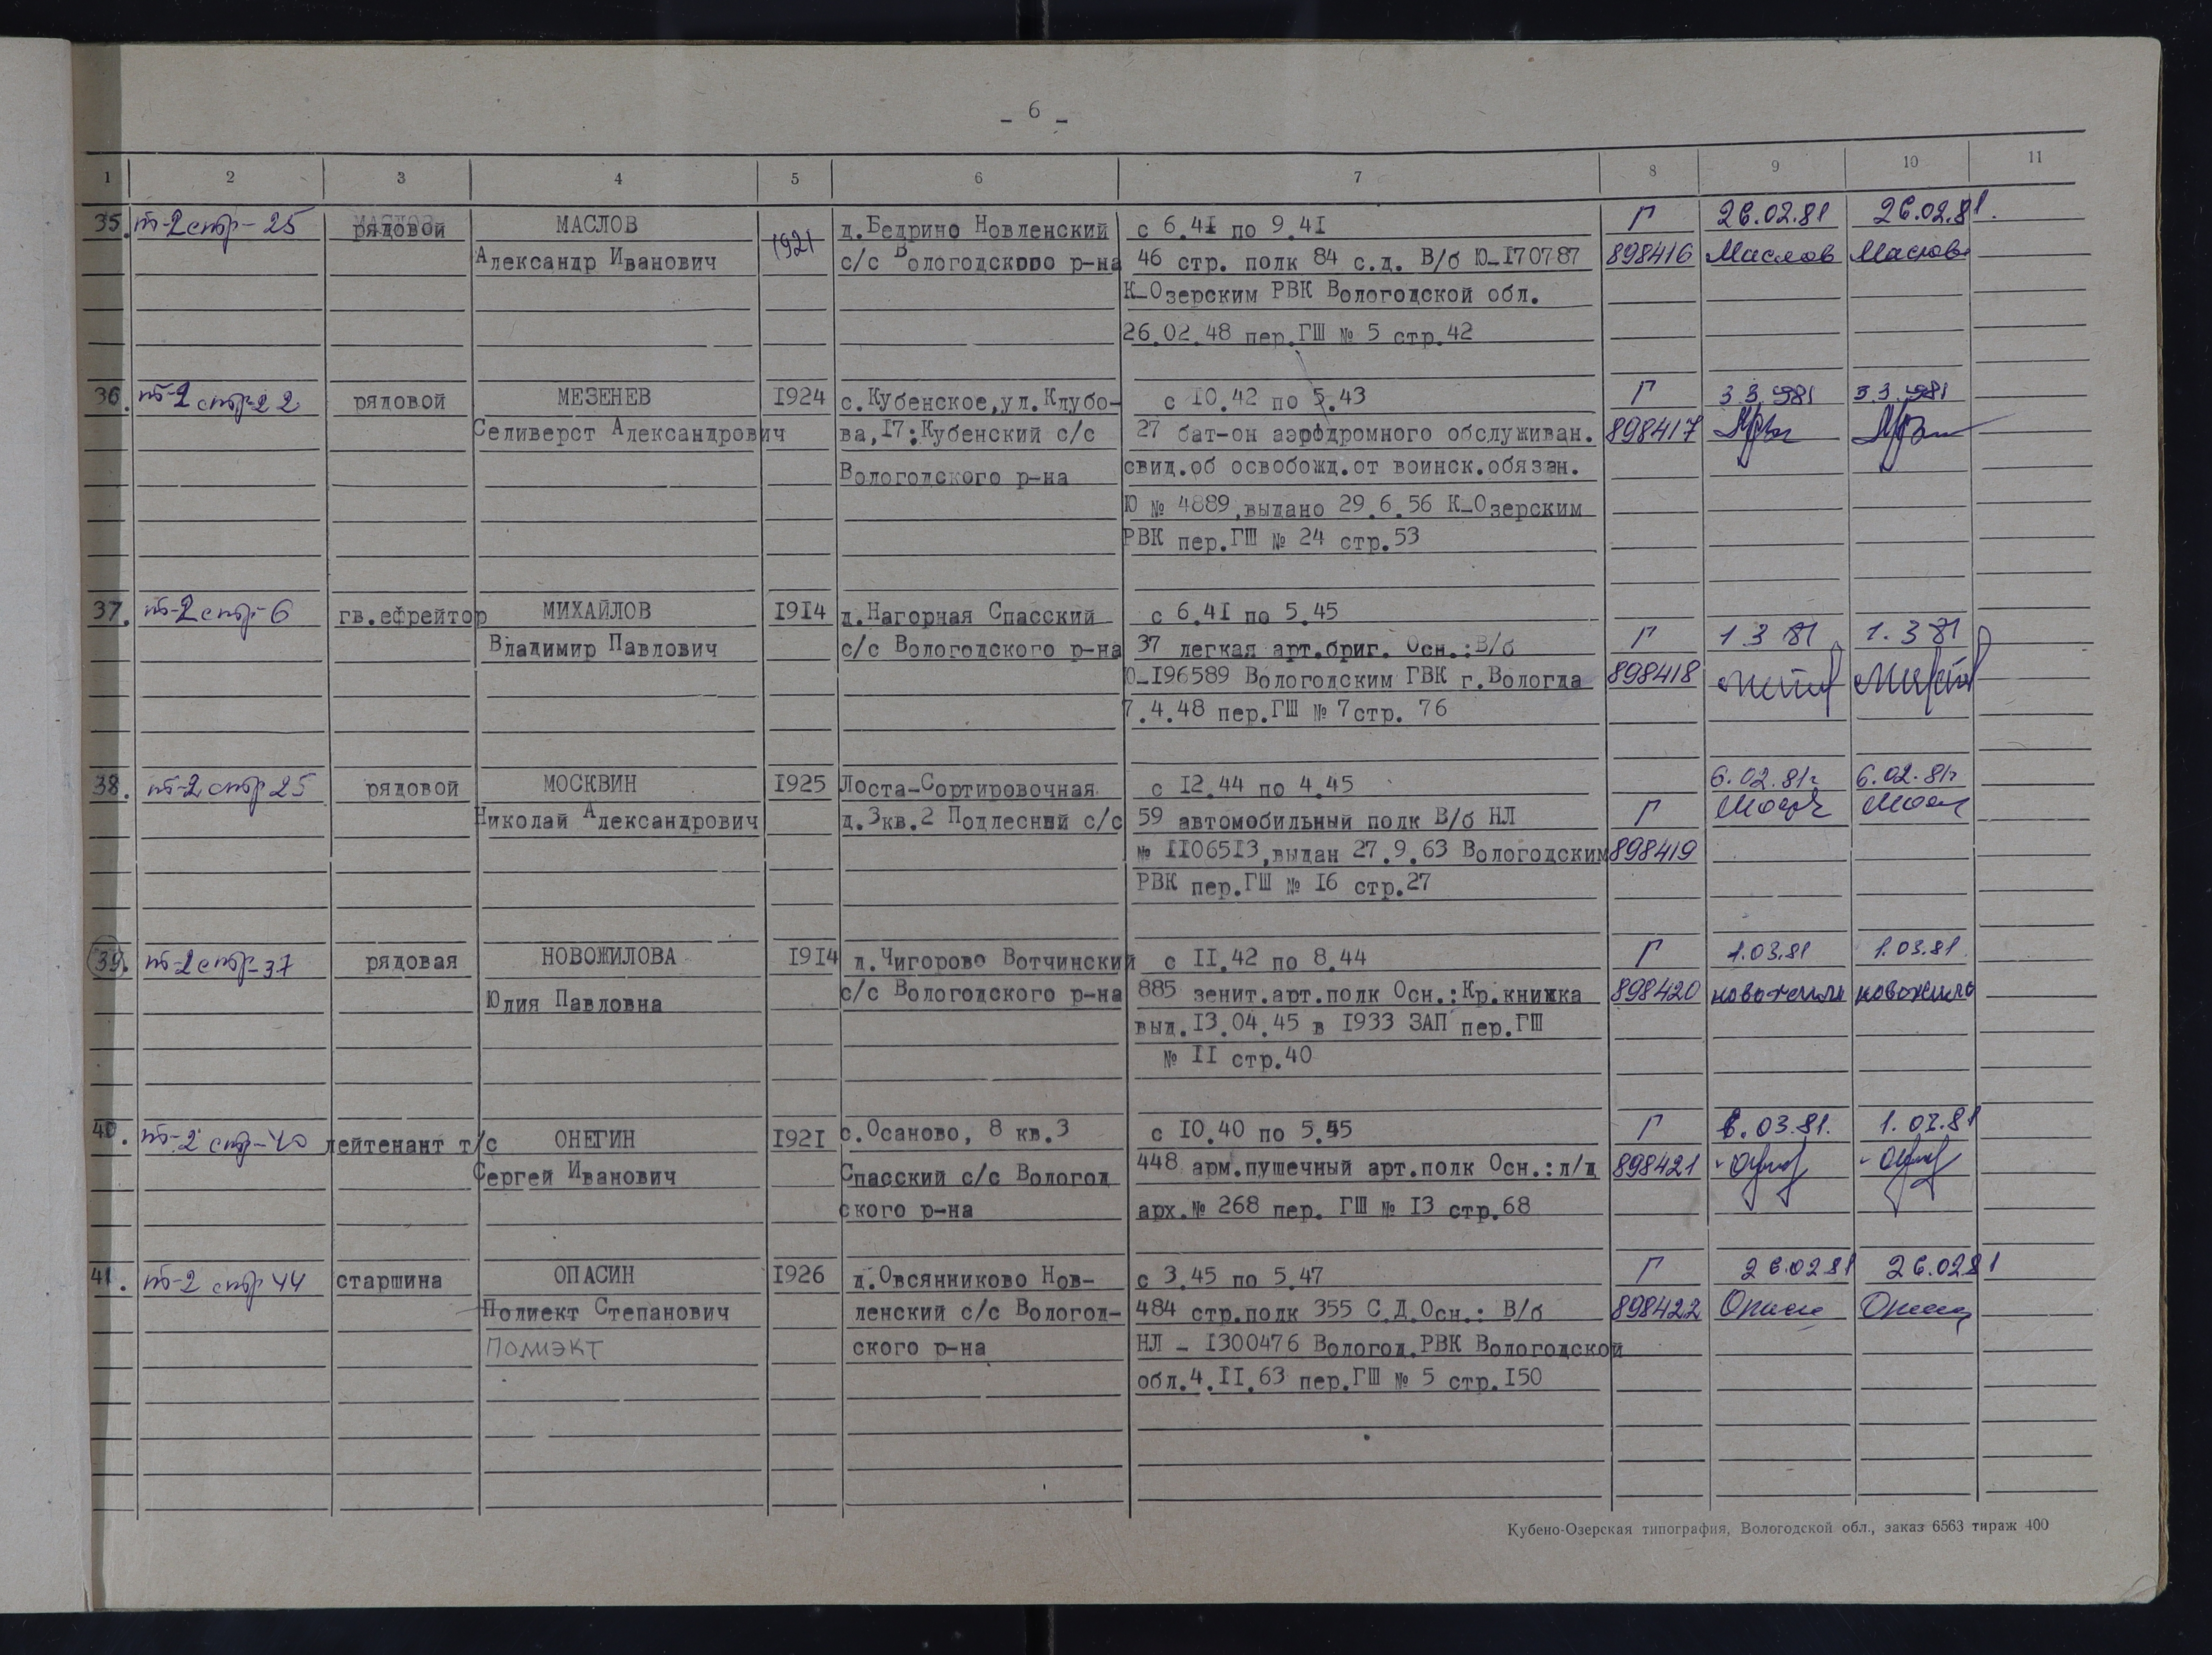 - 6 -
1 2 3 4 5 6 7 8 9 10 11
35. т-2 стр-25 рядовой МАСЛОВ 1921 д.Бедрино Новленский с 6.41 по 9.41 Г 26.02.81 26.02.81.
Александр Иванович с/с Вологодского р-на 46 стр. полк 84 с.д. В/б Ю-170787 898416 Маслов Маслов
К-Озерским РВК Вологодской обл.
26.02.48 пер.ГШ № 5 стр.42
36. т-2 стр-22 рядовой МЕЗЕНЕВ 1924 с.Кубенское,ул.Клубо- с 10.42 по 5.43 Г 3.3.1981 3.3.1981
Селиверст Александрович ва,17;Кубенский с/с 27 бат-он аэродромного обслуживан. 898417
Вологодского р-на свид.об освобожд.от воинск.обязан.
Ю № 4889,выдано 29.6.56 К-Озерским
РВК пер.ГШ № 24 стр.53
37. т-2 стр-6 гв.ефрейтор МИХАЙЛОВ 1914 д.Нагорная Спасский с 6.41 по 5.45
Владимир Павлович с/с Вологодского р-на 37 легкая арт.бриг. Осн.:В/б Г 1 3 81 1. 3 81
Ю-196589 Вологодским ГВК г.Вологда 898418
7.4.48 пер.ГШ № 7стр. 76
38. т-2 стр 25 рядовой МОСКВИН 1925 Лоста-Сортировочная с 12.44 по 4.45 6.02.81г 6.02.81г
Николай Александрович д.3кв.2 Подлесный с/с 59 автомобильный полк В/б НЛ Г
№ 1106513,выдан 27.9.63 Вологодским 898419
РВК пер.ГШ № 16 стр.27
39. т-2 стр-37 рядовая НОВОЖИЛОВА 1914 д.Чигорово Вотчинский с 11.42 по 8.44 Г 1.03.81 1.03.81.
Юлия Павловна с/с Вологодского р-на 885 зенит.арт.полк Осн.:Кр.книжка 898420 новожило новожило
выд.13.04.45 в 1933 ЗАП пер.ГШ
№ 11 стр.40
40. т-2 стр-40 лейтенант т/с ОНЕГИН 1921 с.Осаново, 8 кв.3 с 10.40 по 5.45 Г 6.03.81. 1.03.81
Сергей Иванович Спасский с/с Вологод 448 арм.пушечный арт.полк Осн.:л/д 898421
ского р-на арх.№ 268 пер. ГШ № 13 стр.68
41. т-2 стр 44 старшина ОПАСИН 1926 д.Овсянниково Нов- с 3.45 по 5.47 Г 26.02.81 26.02.81
Полиект Степанович ленский с/с Вологод- 484 стр.полк 355 С.Д.Осн.: В/б 898422
ПОЛИЭКТ ского р-на НЛ - 1300476 Вологод.РВК Вологодской
обл.4.11.63 пер.ГШ № 5 стр.150
Кубено-Озерская типография, Вологодской обл., заказ 6563 тираж 400